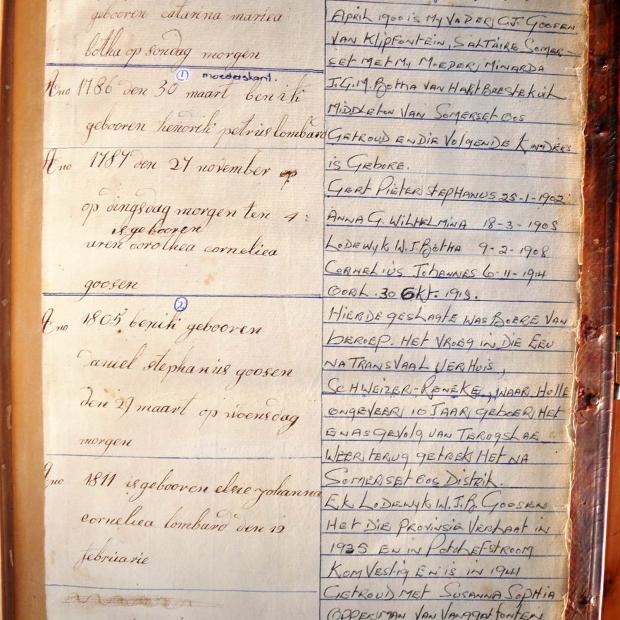 gebooren catarina mariea
botha op sondag morgen
① moederskant.
Ano 1786 den 30 maart ben ik
gebooren hendrik petrus lombard
Ano 1787 den 27 november op
op dingsdag morgen ten 4
is gebooren
uren dorothea corneliea
goosen
②
Ano 1805 ben ik gebooren
daniel stephanus goosen
den 27 maart op woensdag
morgen
Ano 1811 is gebooren elsie johanna
corneliea lombard den 19
februarie
APRIL 1900 IS MY VADER C.J. GOOSEN
VAN KLIPFONTEIN, SALTAIRE SOMER-
SET MET MY MOEDER MINARDA
J.G.M. BOTHA VAN HARTBEESTEKUIL
MIDDLETON VAN SOMERSET OOS
GETROUD EN DIE VOLGENDE KINDERS
IS GEBORE.
GERT PIETER STEPHANUS 25-1-1902
ANNA G. WILHELMINA 18-3-1905
LODEWYK W.J. BOTHA 9-2-1908
CORNELIUS JOHANNES 6-11-1914
OORL. 30 OKT. 1918.
HIERDE GESLAGTE WAS BOERE VAN
BEROEP. HET VROEG IN DIE EEU
NA TRANSVAAL VERHUIS,
SCHWEIZER-RENEKE, WAAR HULLE
ONGEVEER 10 JAAR GEBOER HET
EN AS GEVOLG VAN TERUGSLAE
WEER TERUG GETREK HET NA
SOMERSET OOS DISTRIK.
EK LODEWYK W.J.B. GOOSEN
HET DIE PROVINSIE VERLAAT IN
1925 EN IN POTCHEFSTROOM
KOM VESTIG EN IS IN 1941
GETROUD MET SUSANNA SOPHIA
OPPERMAN VAN